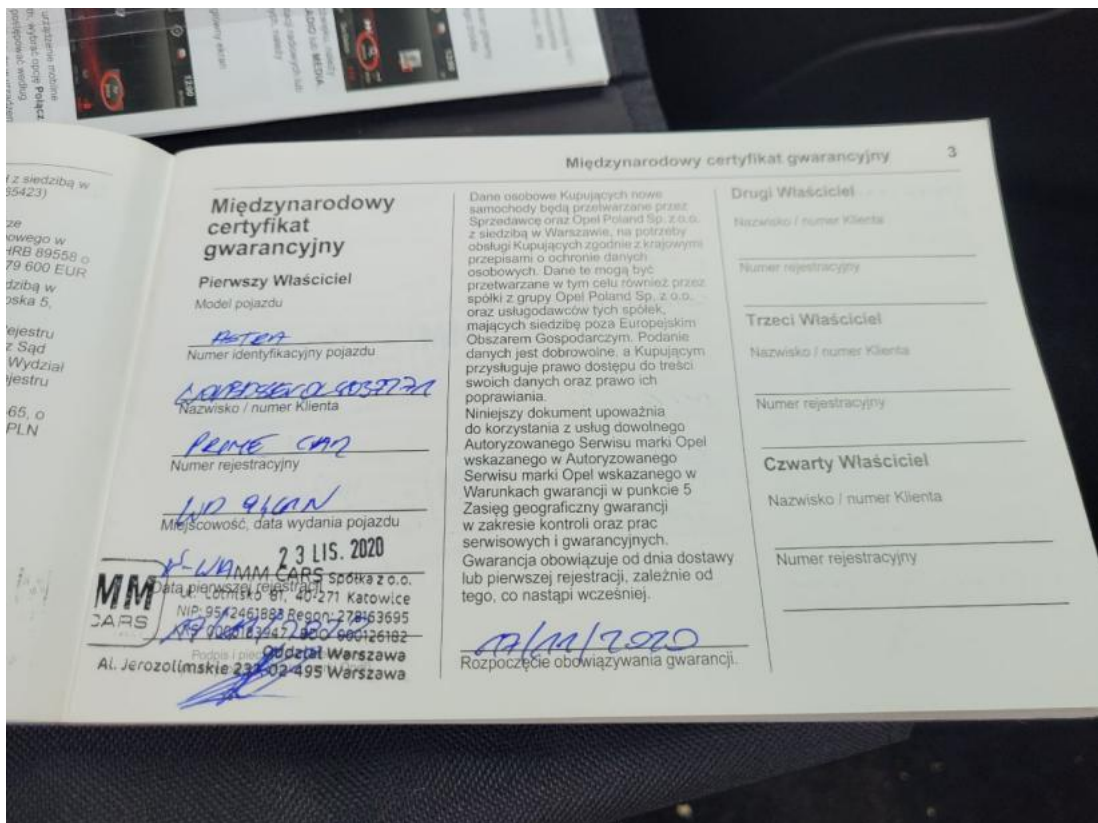 urządzenie mobilne
wybrać opcję Połącz
postępować według
12:00
główny ekran
należy
RADIO lub MEDIA.
Międzynarodowy certyfikat gwarancyjny 3
z siedzibą w
owego w
HRB 89558 o
79 600 EUR
dzibą w
oska 5,
ejestru
z Sąd
Wydział
ejestru
65, o
PLN
Międzynarodowy
certyfikat
gwarancyjny
Pierwszy Właściciel
Model pojazdu
ASTRA
Numer identyfikacyjny pojazdu
Nazwisko / numer Klienta
PRIME CAR
Numer rejestracyjny
Miejscowość, data wydania pojazdu
W-WA
23 LIS. 2020
Data pierwszej rejestracji
MM
CARS
MM CARS Spółka z o.o.
ul. Lotnisko 81, 40-271 Katowice
NIP: 9542461883 Regon: 278163695
Oddział Warszawa
Al. Jerozolimskie 02-495 Warszawa
Dane osobowe Kupujących nowe
samochody będą przetwarzane przez
Sprzedawcę oraz Opel Poland Sp. z o.o.
z siedzibą w Warszawie, na potrzeby
obsługi Kupujących zgodnie z krajowymi
przepisami o ochronie danych
osobowych. Dane te mogą być
przetwarzane w tym celu również przez
spółki z grupy Opel Poland Sp. z o.o.
oraz usługodawców tych spółek,
mających siedzibę poza Europejskim
Obszarem Gospodarczym. Podanie
danych jest dobrowolne, a Kupującym
przysługuje prawo dostępu do treści
swoich danych oraz prawo ich
poprawiania.
Niniejszy dokument upoważnia
do korzystania z usług dowolnego
Autoryzowanego Serwisu marki Opel
wskazanego w Autoryzowanego
Serwisu marki Opel wskazanego w
Warunkach gwarancji w punkcie 5
Zasięg geograficzny gwarancji
w zakresie kontroli oraz prac
serwisowych i gwarancyjnych.
Gwarancja obowiązuje od dnia dostawy
lub pierwszej rejestracji, zależnie od
tego, co nastąpi wcześniej.
17/11/2020
Rozpoczęcie obowiązywania gwarancji.
Drugi Właściciel
Nazwisko / numer Klienta
Numer rejestracyjny
Trzeci Właściciel
Nazwisko / numer Klienta
Numer rejestracyjny
Czwarty Właściciel
Nazwisko / numer Klienta
Numer rejestracyjny